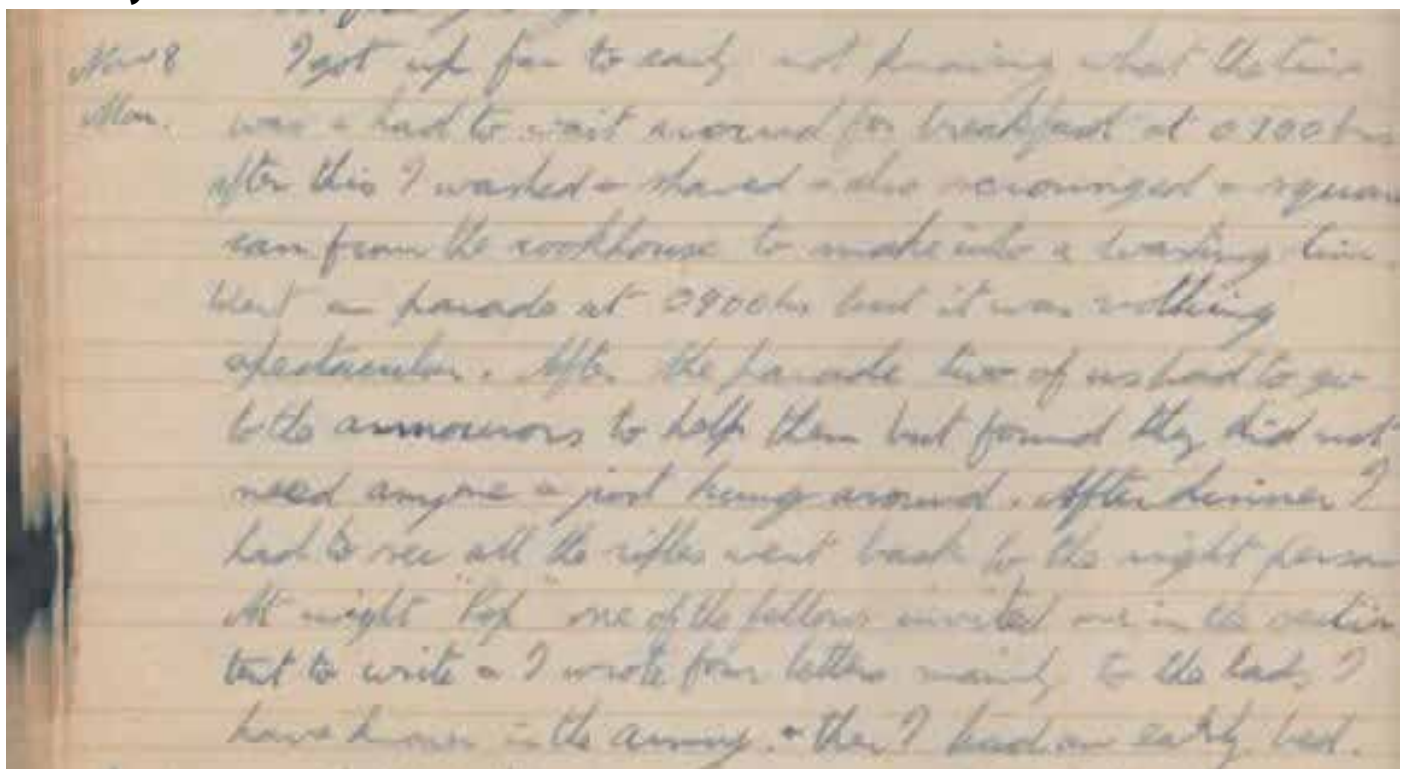 Nov 8 I got up far to early not knowing what the time
Mon. was & had to wait around for breakfast at 0800 hrs
after this I washed & shaved & also scrounged a square
can from the cookhouse to make into a washing tin.
Went on parade at 0900 hrs but it was nothing
spectacular. After the parade two of us had to go
to the armourors to help them but found they did not
need anyone & just hung around. After dinner I
had to see all the rifles went back to the right person
At night "Pop" one of the fellows invited me in the section
tent to write & I wrote four letters mainly to the lads I
have known in the army. & then I had an early bed.